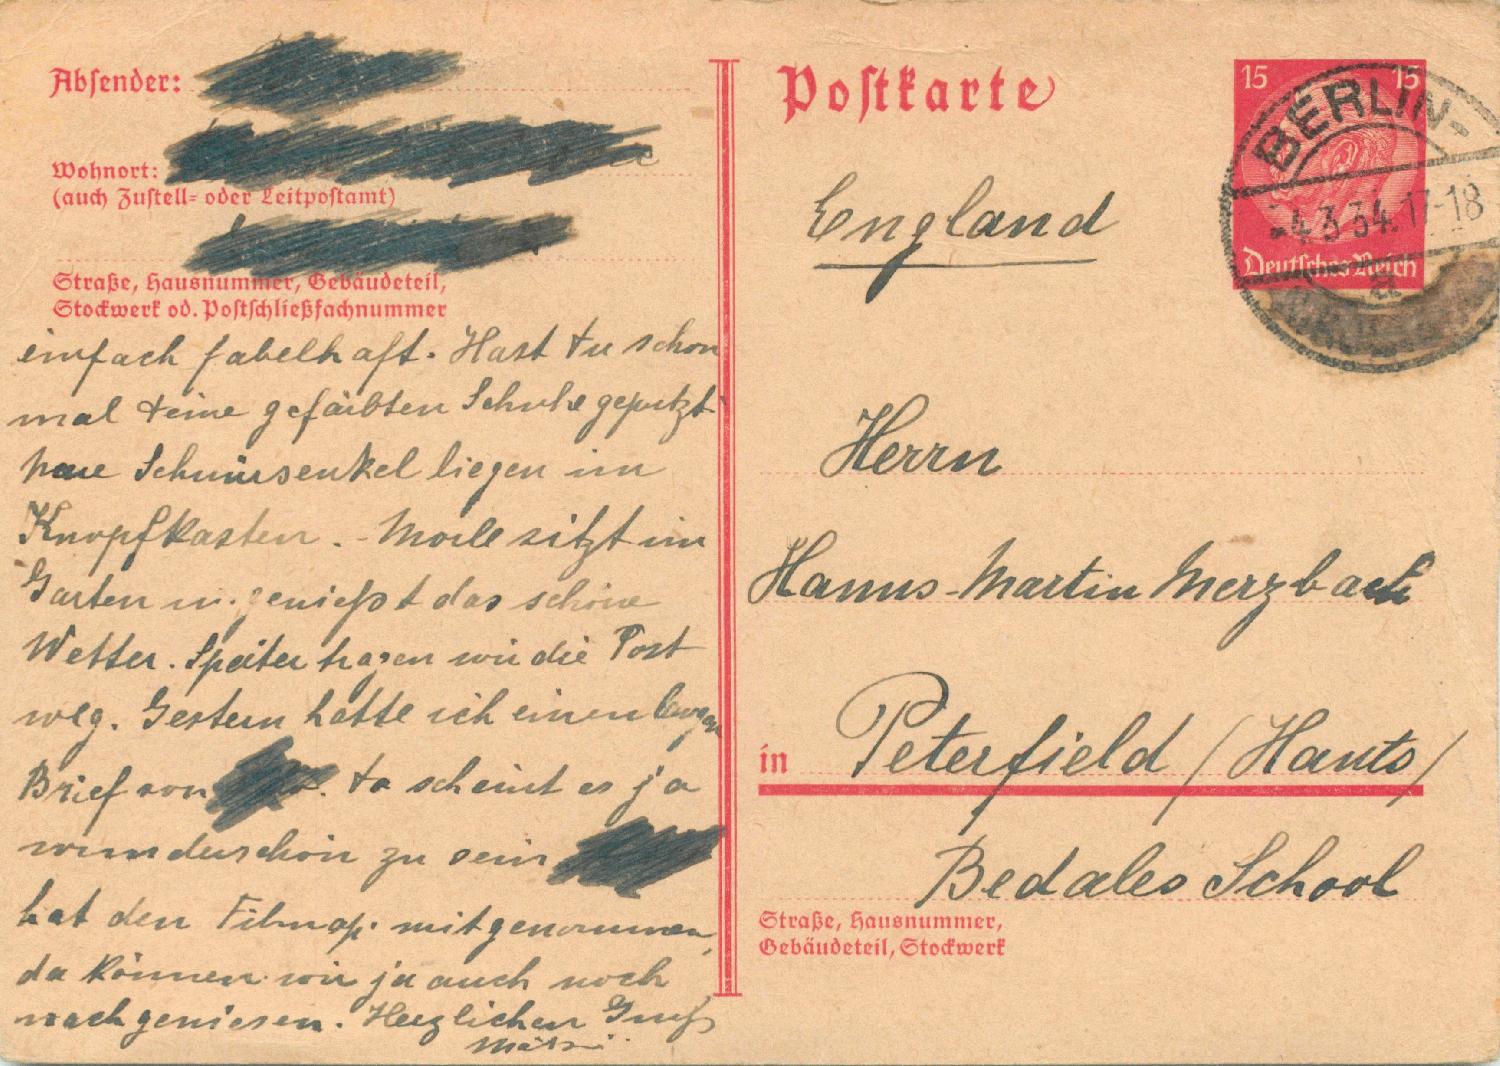 Absender:
Wohnort:
(auch Zustell- oder Leitpostamt)
Straße, Hausnummer, Gebäudeteil,
Stockwerk od. Postschließfachnummer
einfach fabelhaft. Hast du schon
mal deine gefärbten Schuhe geputzt
neue Schnürsenkel liegen im
Knopfkasten. - sitzt im
Garten u. genießt das schöne
Wetter. Später tragen wir die Post
weg. Gestern hatte ich einen langen
Brief von da scheint es ja
wunderschön zu sein
hat den Filmap. mitgenommen,
da können wir ja auch noch
nachgeniesen. Herzlichen Gruß
Postkarte
15 15
Deutsches Reich
BERLIN-
-4.3.34.17-18
England
Herrn
Hanns-Martin Merzbach
in Peterfield (Hants)
Bedales School
Straße, Hausnummer,
Gebäudeteil, Stockwerk